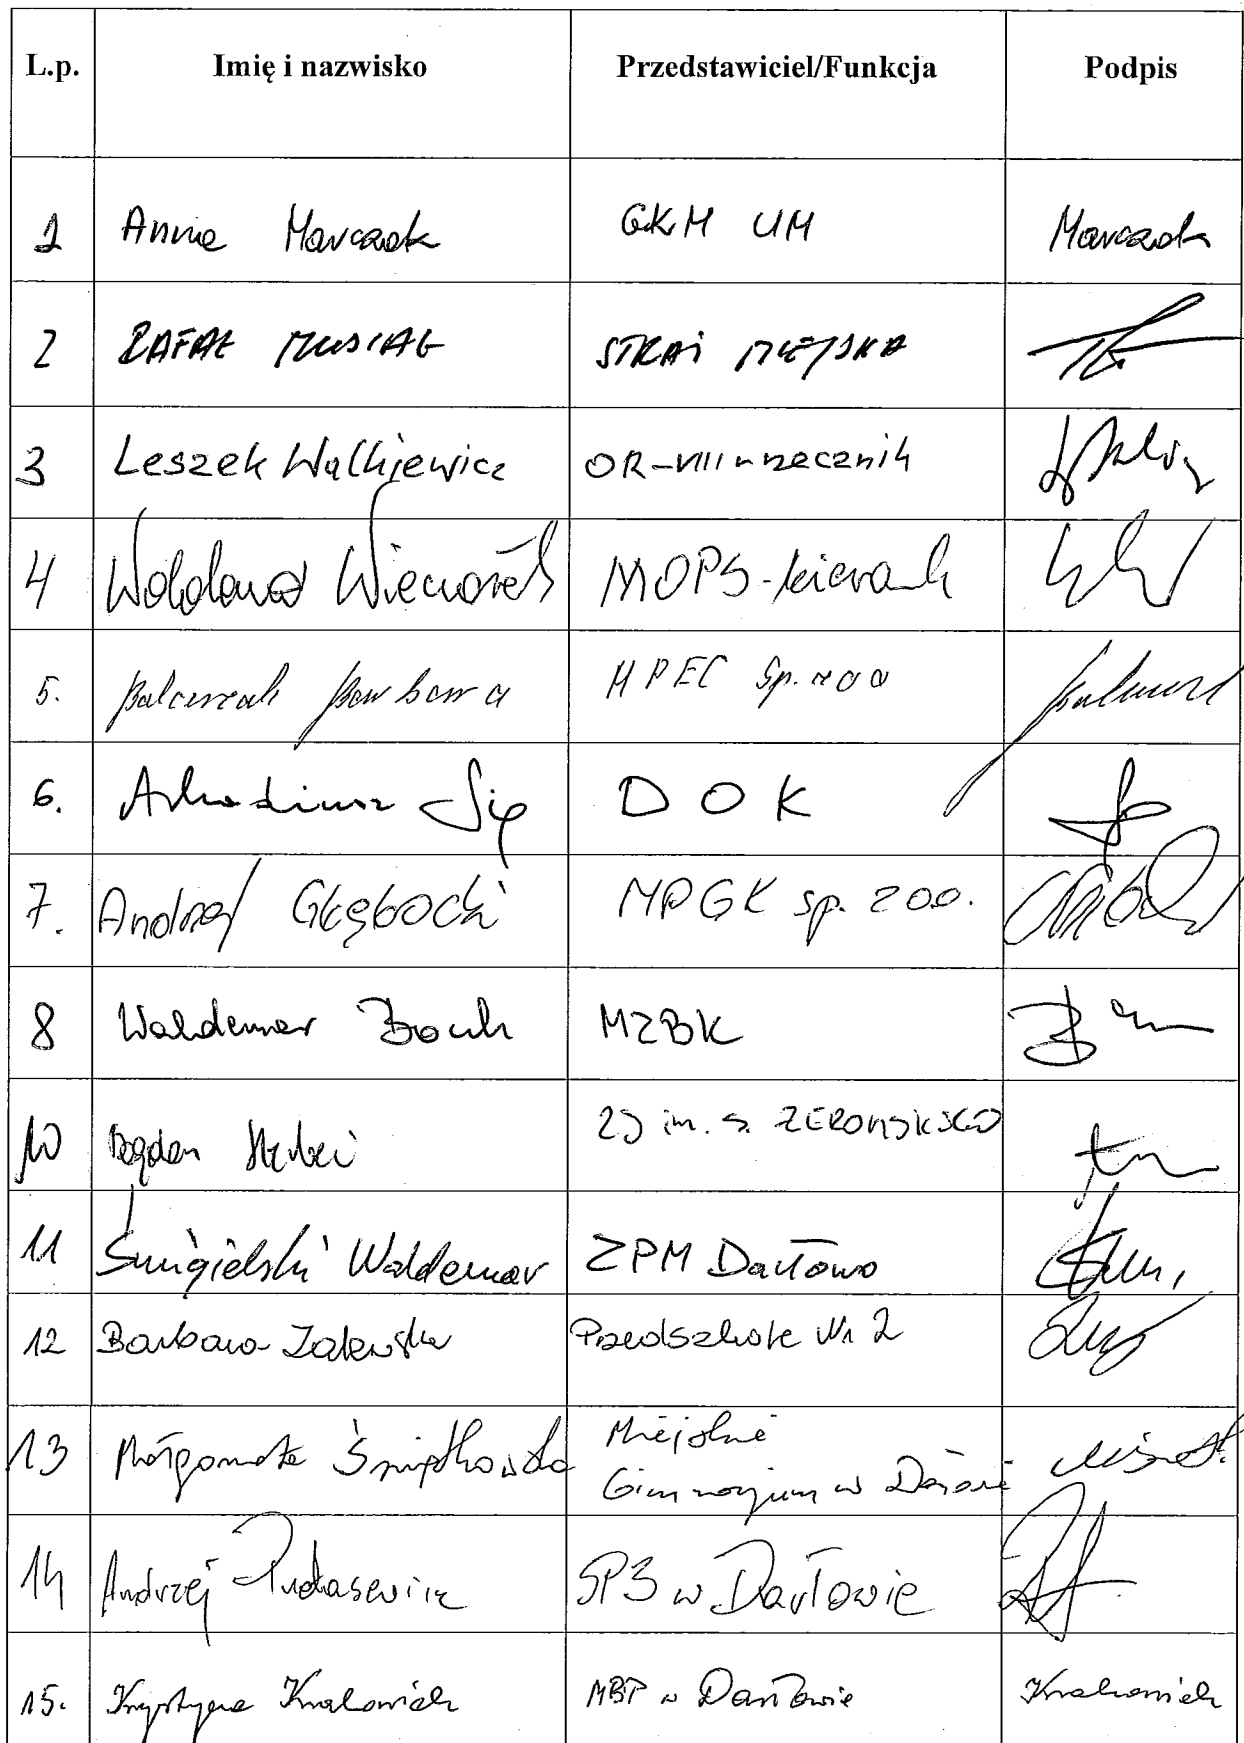 L.p. Imię i nazwisko Przedstawiciel/Funkcja Podpis
1 Anna Marczak GKM UM Marczak
2 RAFAŁ MUSIAŁ STRAŻ MIEJSKA
3 Leszek Walkiewicz OR-VIII rzecznik
4 Waldemar Wieczorek MOPS-kierownik
5. Balcerzak Barbara MPEC Sp. z oo
6. Arkadiusz Sip DOK
7. Andrzej Głębocki MPGK sp. z oo.
8 Waldemar MZBK
10 Bogdan ZS im. S. ŻEROMSKIEGO
11 Śmigielski Waldemar ZPM Darłowo
12 Barbara Zalewska Przedszkole Nr 2
13 Małgorzata Śniptkowska Miejskie
Gimnazjum w
14 Andrzej SP3 w Darłowie
15. Krystyna MBP w Darłowie